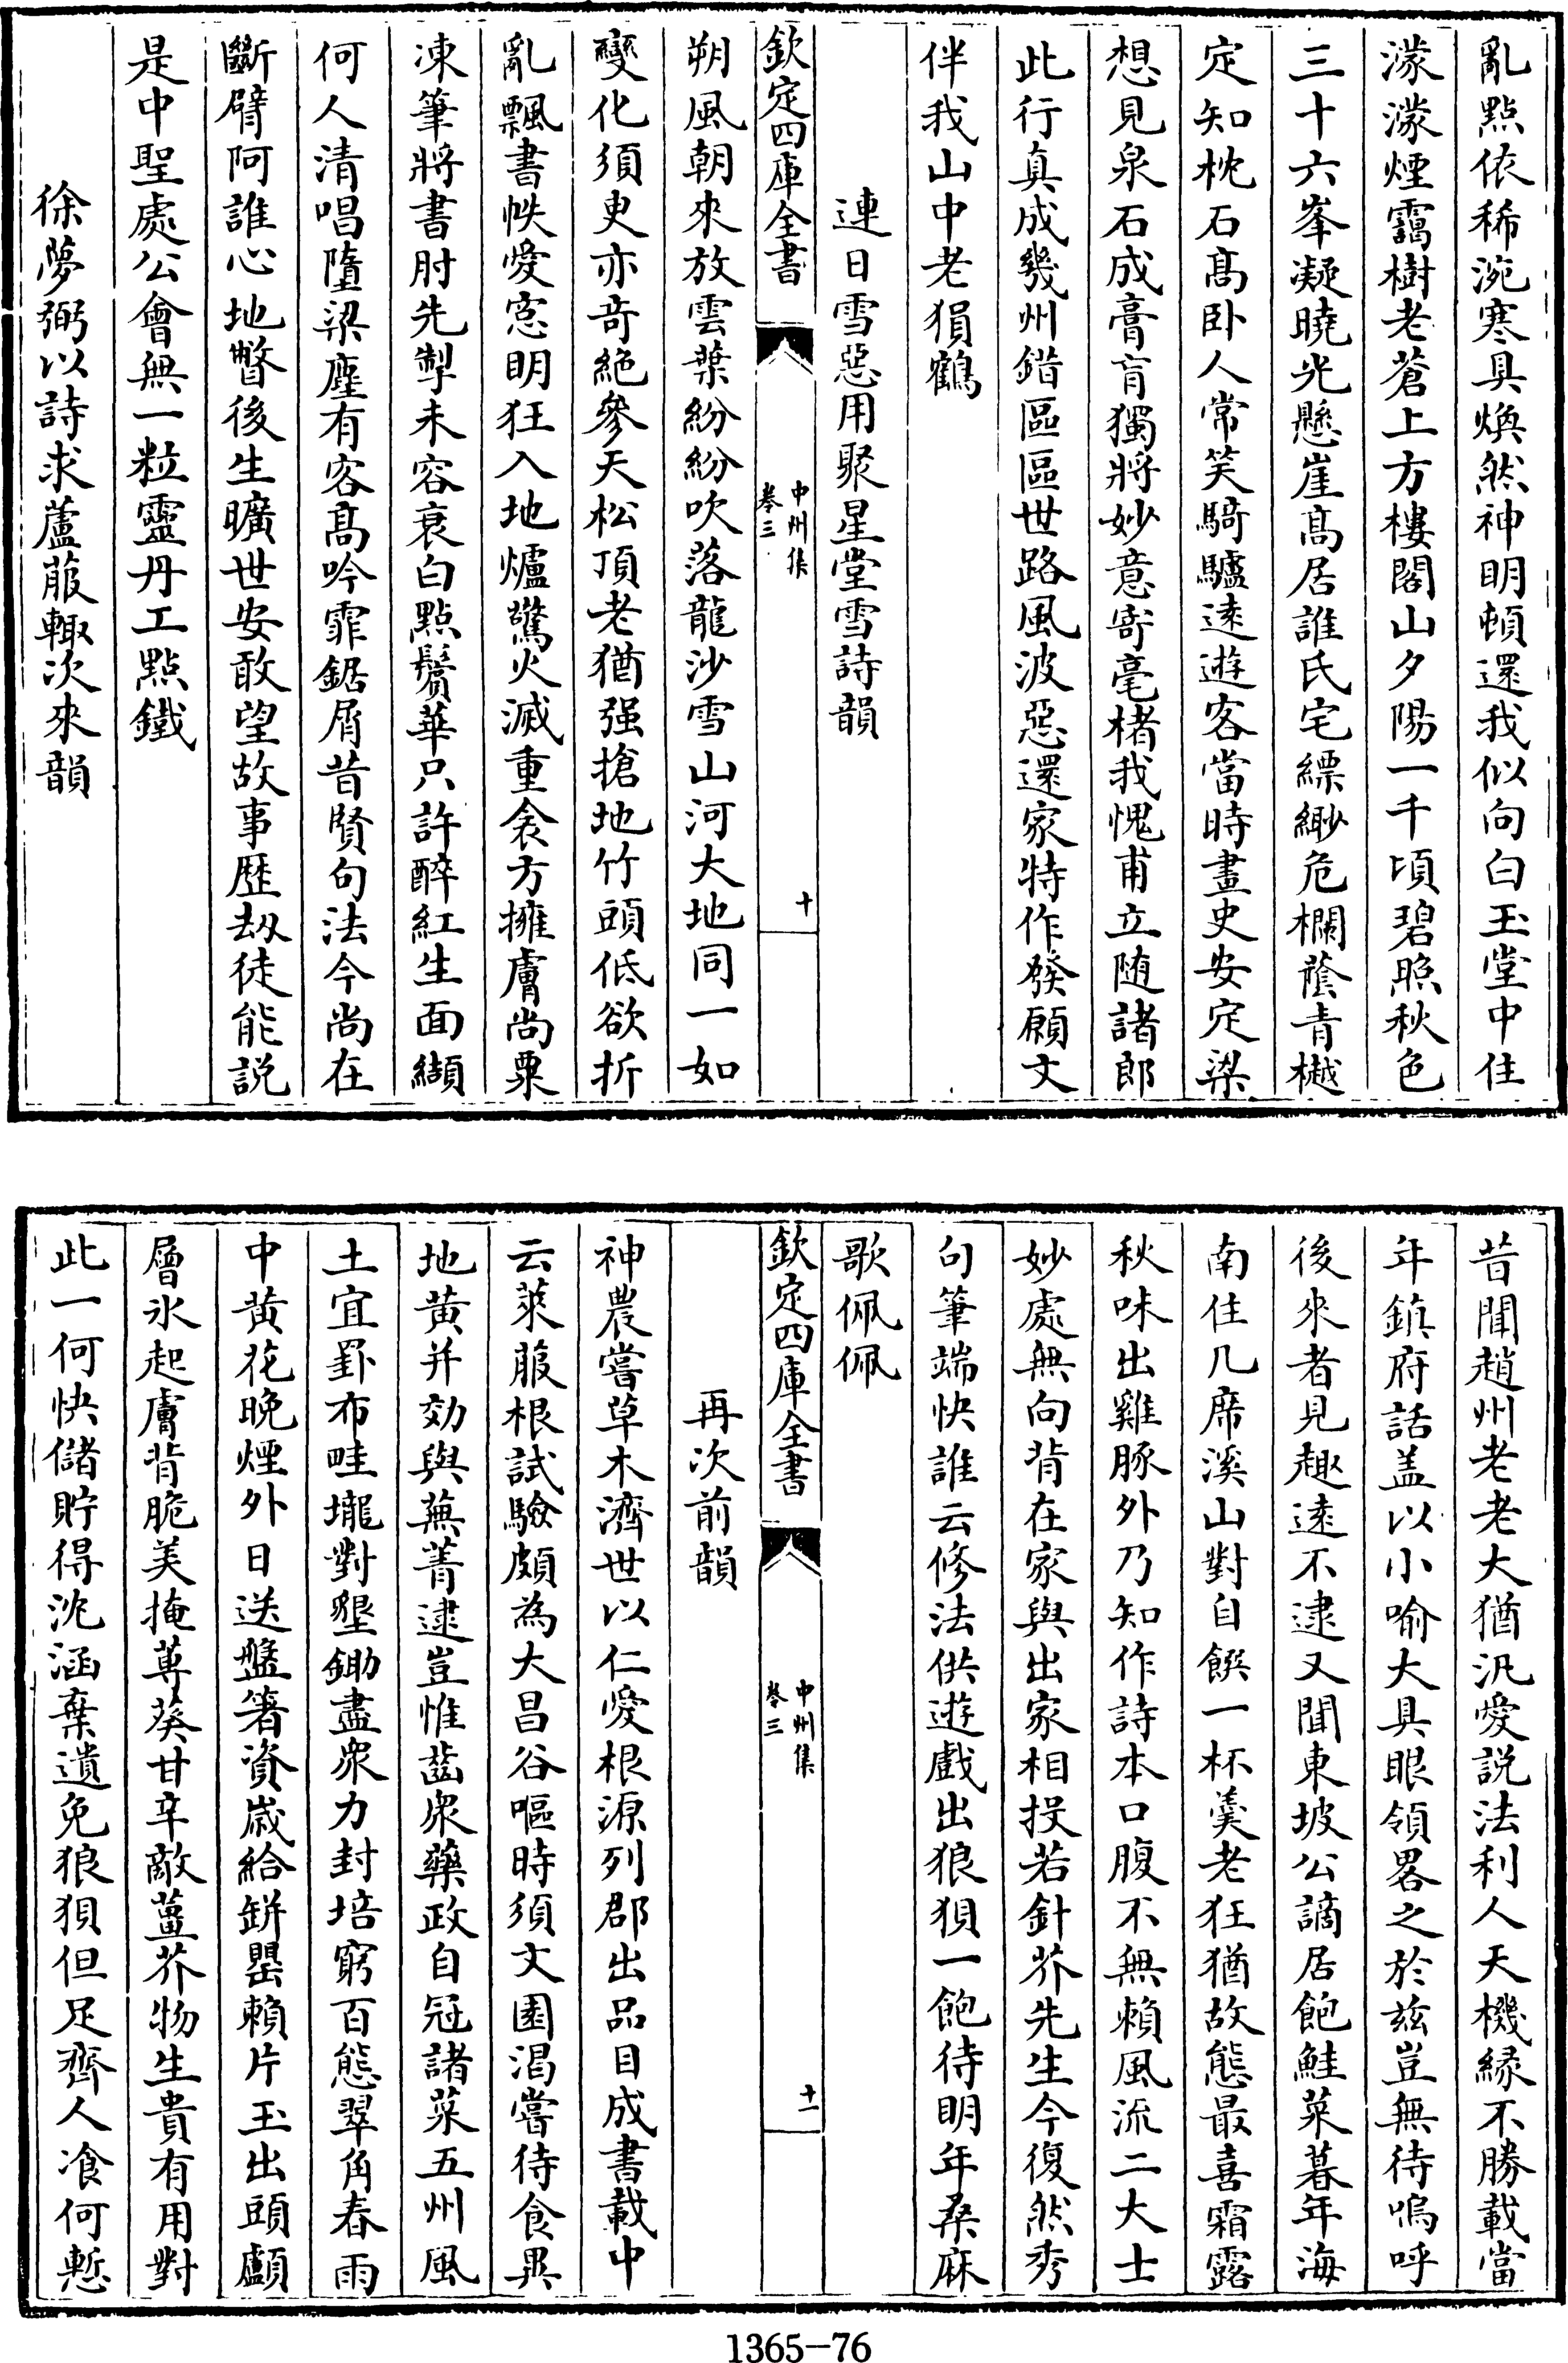 亂點依稀涴寒具煥然神明頓還我似向白玉堂中住
濛濛煙靄樹老蒼上方樓閣山夕陽一千頃碧照秋色
三十六峯凝曉光懸崖髙居誰氏宅縹緲危欄蔭青樾
定知枕石髙卧人常笑騎驢逺遊客當時畫史安定梁
想見泉石成膏肓獨將妙意寄毫楮我愧甫立随諸郎
此行真成幾州錯區區世路風波惡還家特作發願文
伴我山中老猿鶴
連日雪惡用聚星堂雪詩韻
欽定四庫全書
中州集
卷三
十
朔風朝來放雲葉紛紛吹落龍沙雪山河大地同一如
變化須臾亦竒絶參天松頂老猶强搶地竹頭低欲折
亂飄書帙愛窓明狂入地爐驚火滅重衾方擁膚尚粟
凍筆將書肘先掣未容衰白點鬢華只許醉紅生面纈
何人清唱墮梁塵有客髙吟霏鋸屑昔賢句法今尚在
斷臂阿誰心地瞥後生曠世安敢望故事歴刼徒能説
是中聖處公會無一粒靈丹工點鐵
徐夢弼以詩求蘆菔輙次來韻
昔聞趙州老老大猶汎愛説法利人天機緣不勝載當
年鎮府話盖以小喻大具眼領畧之於兹豈無待嗚呼
後來者見趣逺不逮又聞東坡公謫居飽鮭菜暮年海
南住几席溪山對自饌一杯羮老狂猶故態最喜霜露
秋味出雞豚外乃知作詩本口腹不無賴風流二大士
妙處無向背在家與出家相投若針芥先生今復然秀
句筆端快誰云修法供遊戲出狼狽一飽待明年桑麻
歌佩佩
欽定四庫全書
中州集
卷三
十一
再次前韻
神農嘗草木濟世以仁愛根源列郡出品目成書載中
云萊菔根試驗頗為大昌谷嘔時須文園渴嘗待食異
地黄并効與蕪菁逮豈惟葢衆藥政自冠諸菜五州風
土宜罫布畦壠對墾鋤盡衆力封培窮百態翠角春雨
中黄花晚煙外日送盤箸資嵗給缾罌賴片玉出頭顱
層氷起膚背脆美掩蓴葵甘辛敵薑芥物生貴有用對
此一何快儲貯得沈涵棄遺免狼狽但足齊人飡何慙
1365-76